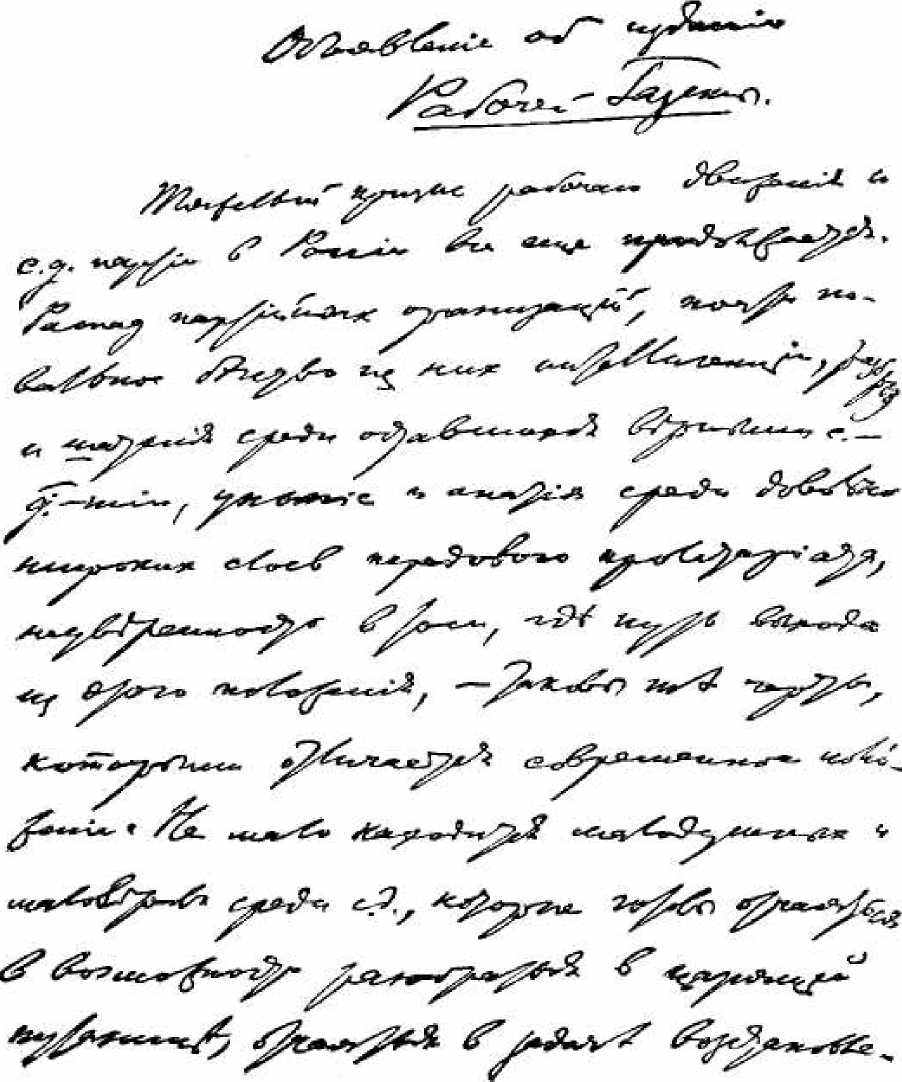 Объявленіе об изданіи
Рабочей Газеты.
Тяжелый кризис рабочаго движенія и
с.д. партіи в Россіи все еще продолжается.
Распад партійных организаций, почти по-
вальное бѣгство из них интеллигенціи, разброд
и шатанія среди оставшихся вѣрными с.-
д.-тіи, уныніе и апатія среди довольно
широких слоев передового пролетаріата,
неувѣренность в том, гдѣ путь выхода
из этого положенія, – таковы тѣ черты,
которыми отличается современное поло-
женіе. Не мало находится малодушных и
маловѣров среди с.д., которые готовы отчаяться
в возможности разобраться в царящей
путаницѣ, отчаяться в задачѣ возстановле-